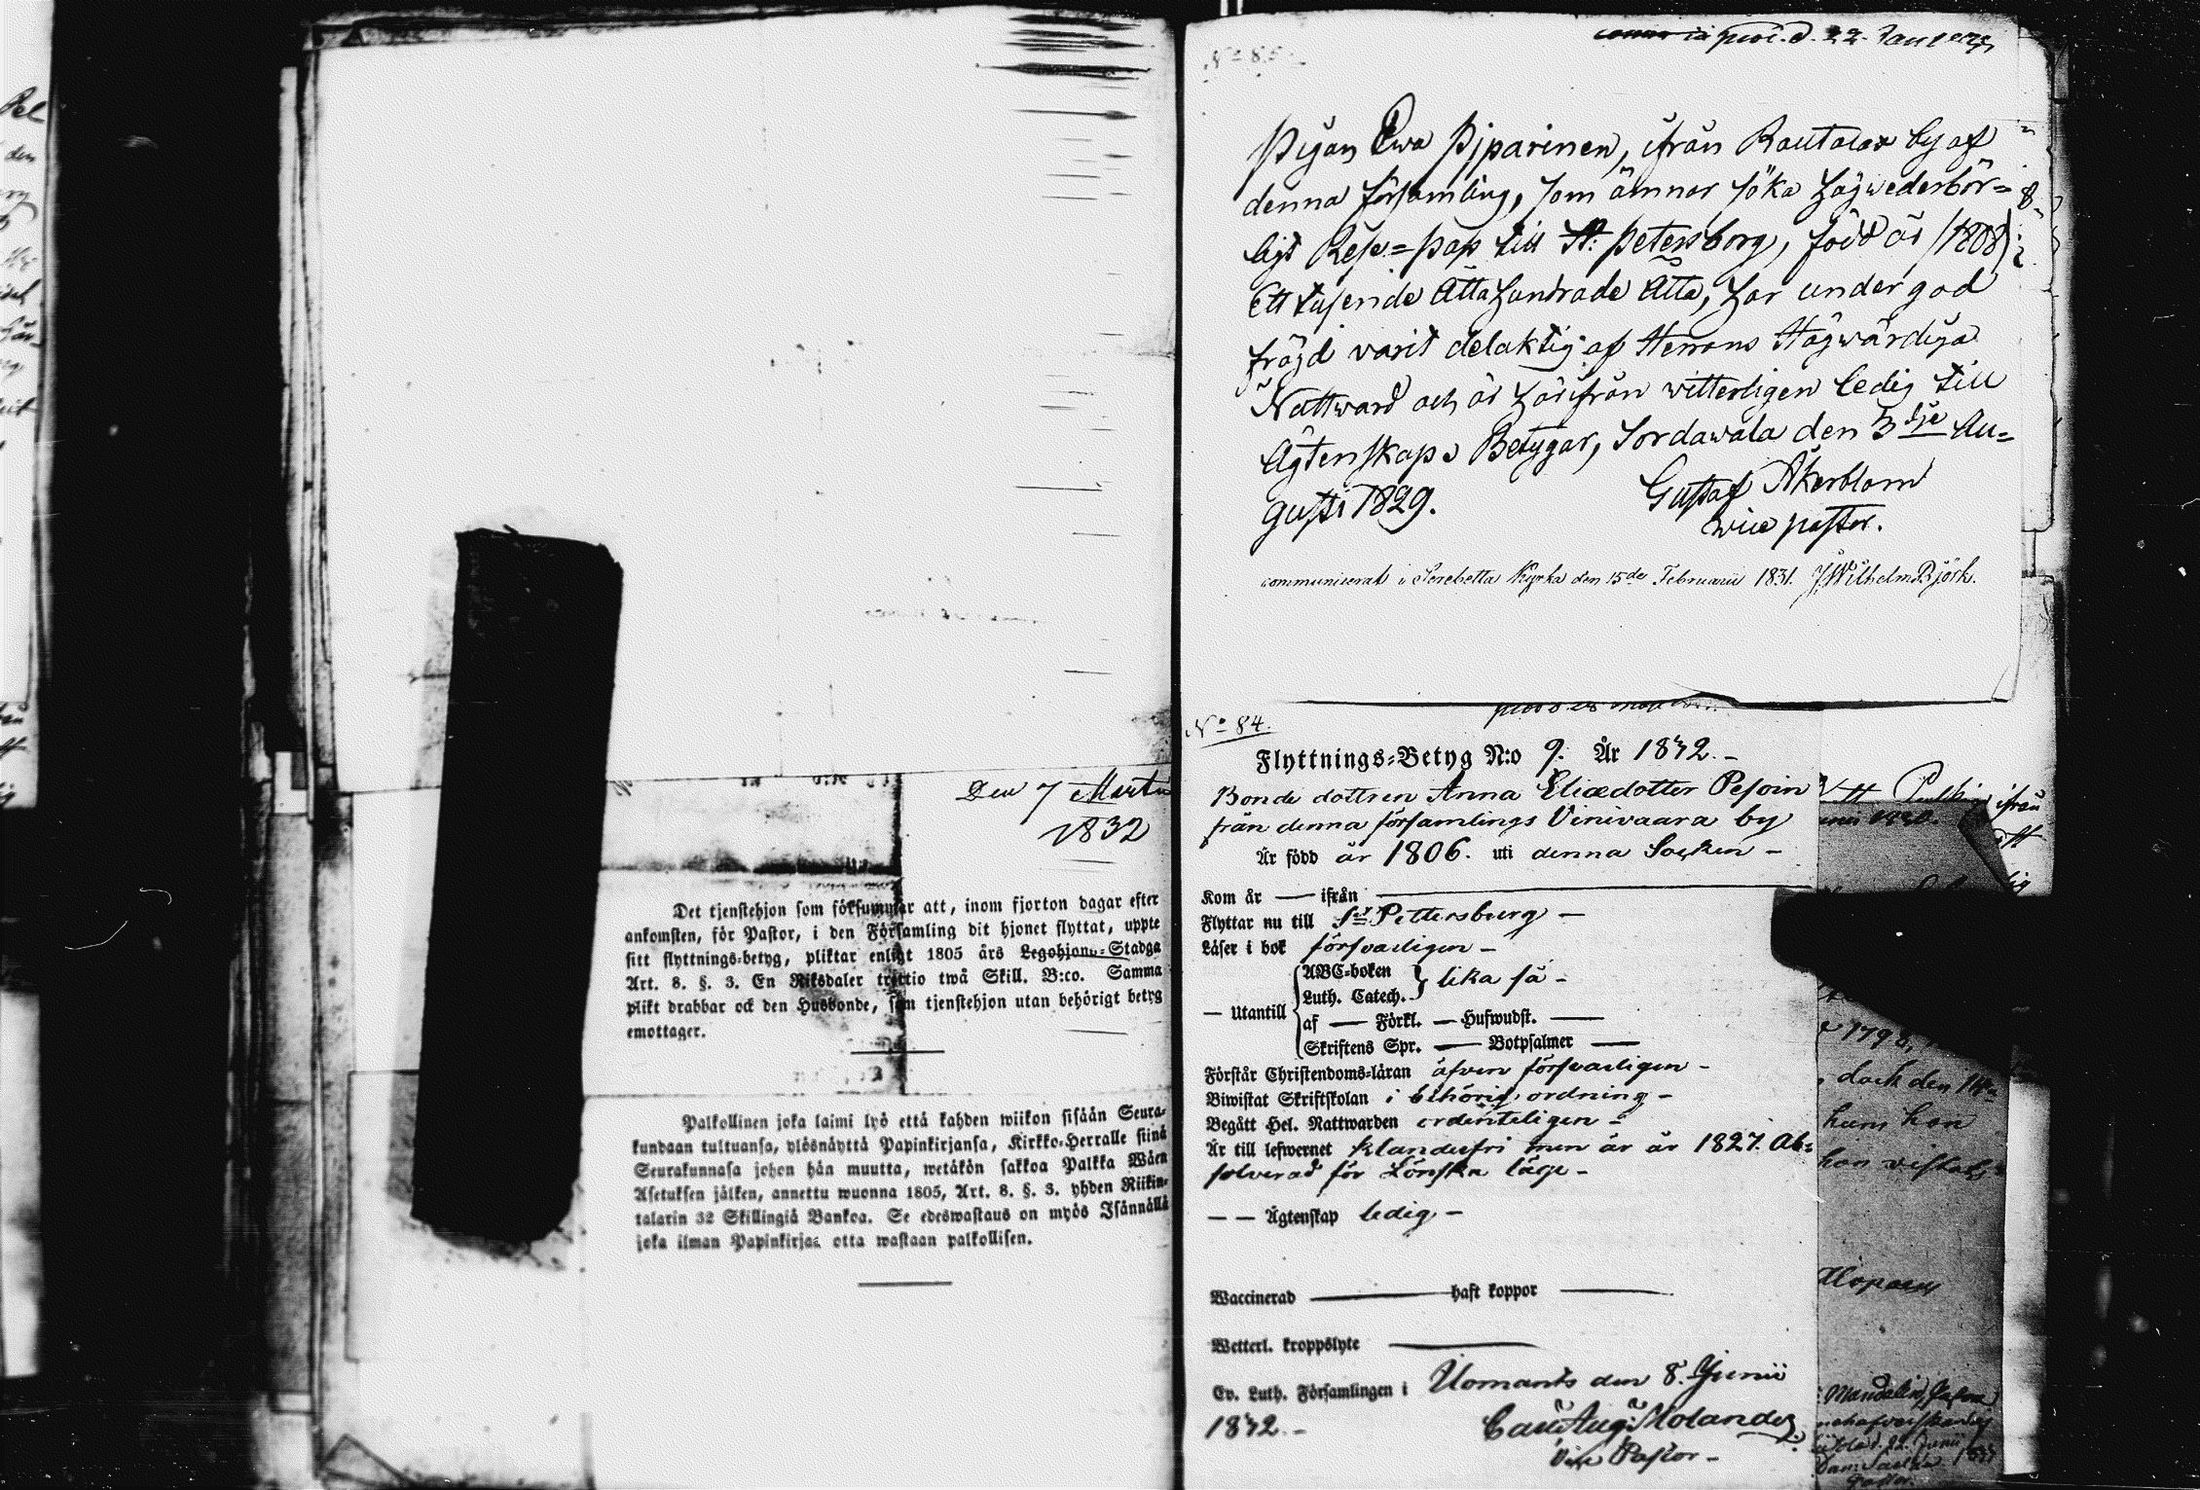 Den 7 Martii
1832
Det tjenstehjon som försummar att, inom fjorton dagar efter
ankomsten, för Pastor, i den Församling dit hjonet flyttat, uppte
sitt flyttnings-betyg, pliktar enligt 1805 års Legohjons-Stadga
Art. 8. §. 3. En Riksdaler trettio twå Skill. B:co. Samma
plikt drabbar ock den Husbonde, som tjenstehjon utan behörigt betyg
emottager.
Palkollinen joka laimi lyö että kahden wiikon sisään Seura-
kundaan tultuansa, ylösnäyttä Papinkirjansa, Kirkko-Herralle siinä
Seurakunnasa johon hän muutta, wetäkön sakkoa Palkka Wäen
Asetuksen jälken, annettu wuonna 1805, Art. 8. §. 3. yhden Riikin-
talarin 32 Skillingiä Bankoa. Se edeswastaus on myös Isännällä
joka ilman Papinkirjaa otta wastaan palkollisen.
No 85.
d. 22. Januarii
Pigan Ewa Pjparinen, ifrån Rautalax by af
denna församling, som ämnar söka högwederbör=
ligt Rese=pass till St: Petersborg, född år (1808)
Ett tusende Åttahundrade Åtta, har under god
fräjd varit delaktig af Herrans Högwärdiga
Nattward och är härifrån witterligen ledig till
Ägtenskap. Betygar, Sordawala den 3dje Au=
gusti 1829.
Gustaf Åkerblom
vice pastor.
communicerat i Serebetta Kyrka den 15de Februarii 1831. J Wilhelm Björk.
No 84.
Flyttnings-Betyg N:o 9. År 1832.-
Bonde dottren Anna Eliædotter Pesoin
från denna församlings Vinivaara by
Är född år 1806. uti denna Socken -
Kom år — ifrån
Flyttar nu till St Pettersburg -
Läser i bok försvarligen -
— Utantill
ABC-boken
Luth. Catech. } lika så -
af — Förkl. — Hufwudst. —
Skriftens Spr. — Botpsalmer —
Förstår Christendoms-läran äfven försvarligen -
Biwistat Skriftskolan i behörig ordning -
Begått Hel. Nattwarden ordenteligen -
Är till lefwernet klanderfri men är år 1827. Ab=
solverad för Lönska läge -
— — Ägtenskap ledig -
Waccinerad — haft koppor —
Wetterl. kroppslyte —
Ev. Luth. Församlingen i Ilomants den 8. Junii
1832.-
Carl Aug: Molander
Vice Pastor -
ifrån
1798,
, dock den
hon